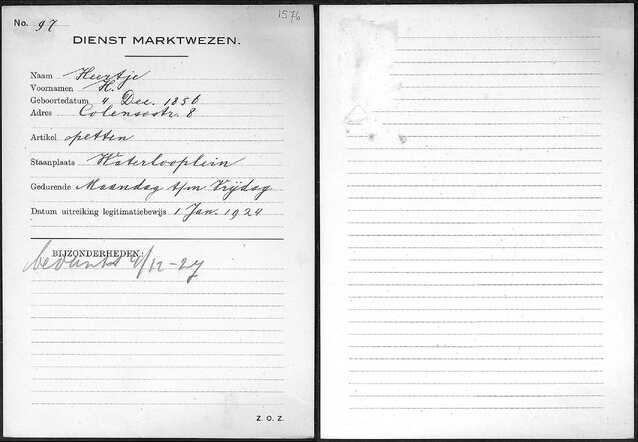 No. 97
1576
DIENST MARKTWEZEN.
Naam Heertje
Voornamen H.
Geboortedatum 4 Dec. 1850
Adres Colensostr. 8
Artikel petten
Staanplaats Waterlooplein
Gedurende Maandag t/m Vrijdag
Datum uitreiking legitimatiebewijs 1 Jan. 1924
BIJZONDERHEDEN:
/12-27
Z. O. Z.